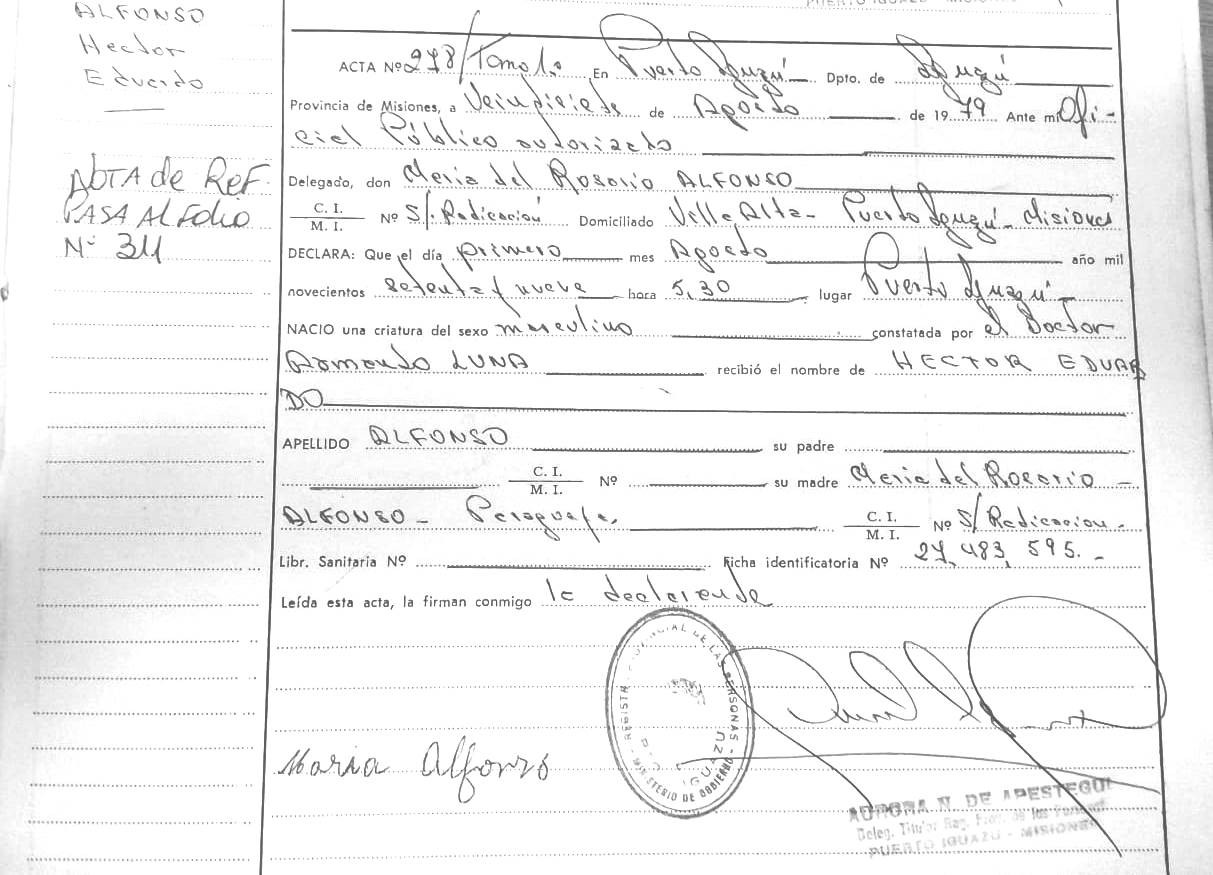 ALFONSO
Hector
Eduardo
NOTA de REF.
PASA AL Folio
Nº 311
ACTA Nº 278/Tomo 1º En Puerto Iguazú Dpto. de Iguazú
Provincia de Misiones, a Veintisiete de Agosto de 1979 Ante mí Ofi-
cial Público autorizado
Delegado, don Maria del Rosario ALFONSO
C. I.
M. I. Nº S/. Radicación Domiciliado Villa Alta - Puerto Iguazú - Misiones
DECLARA: Que el día primero mes Agosto año mil
novecientos setenta y nueve hora 5,30 lugar Puerto Iguazú -
NACIO una criatura del sexo masculino constatada por el Doctor
Armando LUNA recibió el nombre de HECTOR EDUAR
DO
APELLIDO ALFONSO su padre
C. I.
M. I. Nº su madre Maria del Rosario -
ALFONSO - Paraguaya. C. I.
M. I. Nº S/ Radicacion -
Libr. Sanitaria Nº Ficha identificatoria Nº 27,483,595.-
Leída esta acta, la firman conmigo la declarante
REGISTRO PROVINCIAL DE LAS PERSONAS - MINISTERIO DE GOBIERNO
IGUAZU
Maria Alfonzo
AURORA N. DE APESTEGUI
Deleg. Titular Reg. Prov. de las Personas
PUERTO IGUAZU - MISIONES